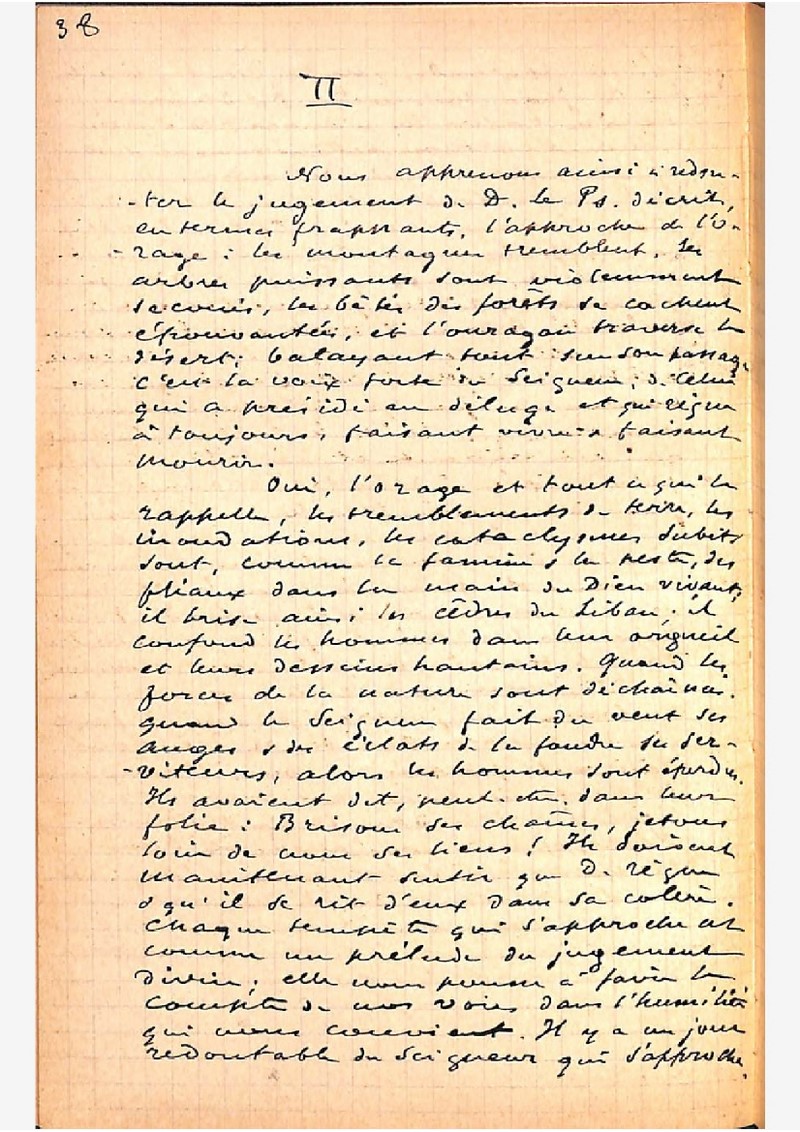 38
II
Nous apprenons ainsi à redou-
-ter le jugement de D. Le Ps. décrit,
en termes frappants, l'approche de l'o-
-rage : les montagnes tremblent, les
arbres puissants sont violemment
secoués, les bêtes des forêts se cachent
épouvantées, et l'ouragan traverse le
désert, balayant tout sur son passage.
C'est la voix forte du Seigneur, de Celui
qui a présidé au déluge et qui règne
à toujours, faisant vivre & faisant
mourir.
Oui, l'orage et tout ce qui le
rappelle, les tremblements de terre, les
inondations, les cataclysmes subits
sont, comme la famine & la peste, des
fléaux dans la main du Dieu vivant;
il brise ainsi les cèdres du Liban; il
confond les hommes dans leur orgueil
et leurs desseins hautains. Quand les
forces de la nature sont déchaînées,
quand le Seigneur fait du vent ses
anges & des éclats de la foudre ses ser-
-viteurs, alors les hommes sont éperdus.
Ils avaient dit, peut-être, dans leur
folie : Brisons ses chaînes, jetons
loin de nous ses liens ! Ils doivent
maintenant sentir que D. règne
& qu'il se rit d'eux dans sa colère.
Chaque tempête qui s'approche est
comme un prélude du jugement
divin; elle nous pousse à faire le
compte de nos voies dans l'humilité
qui nous convient. Il y a un jour
redoutable du Seigneur qui s'approche,